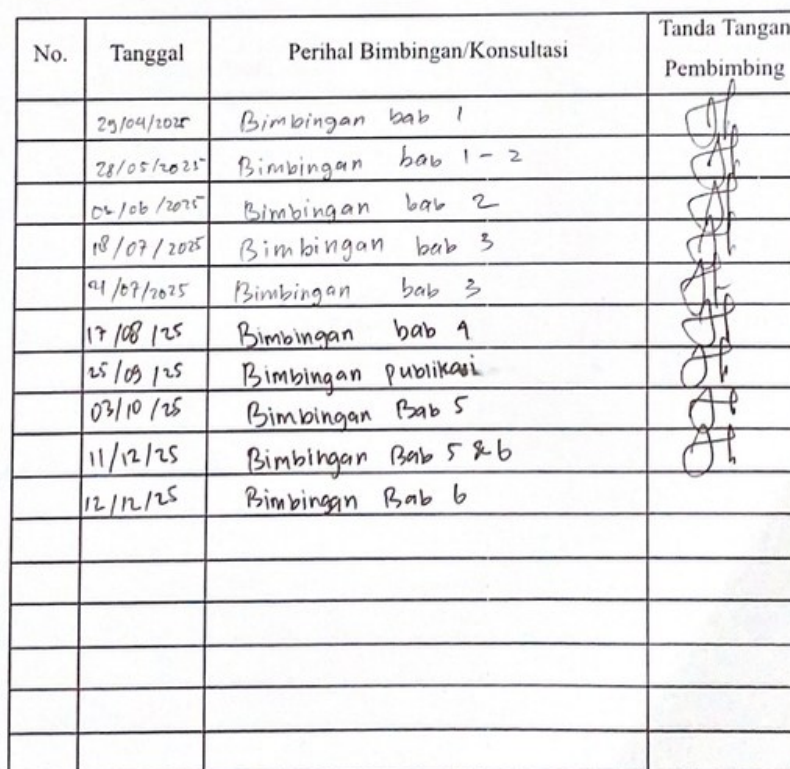 No. Tanggal Perihal Bimbingan/Konsultasi Tanda Tangan Pembimbing
29/04/2025 Bimbingan bab 1
28/05/2025 Bimbingan bab 1 - 2
/06/2025 Bimbingan bab 2
18/07/2025 Bimbingan bab 3
/07/2025 Bimbingan bab 3
17/08/25 Bimbingan bab 4
25/09/25 Bimbingan publikasi
03/10/25 Bimbingan Bab 5
11/12/25 Bimbingan Bab 5 & 6
12/12/25 Bimbingan Bab 6